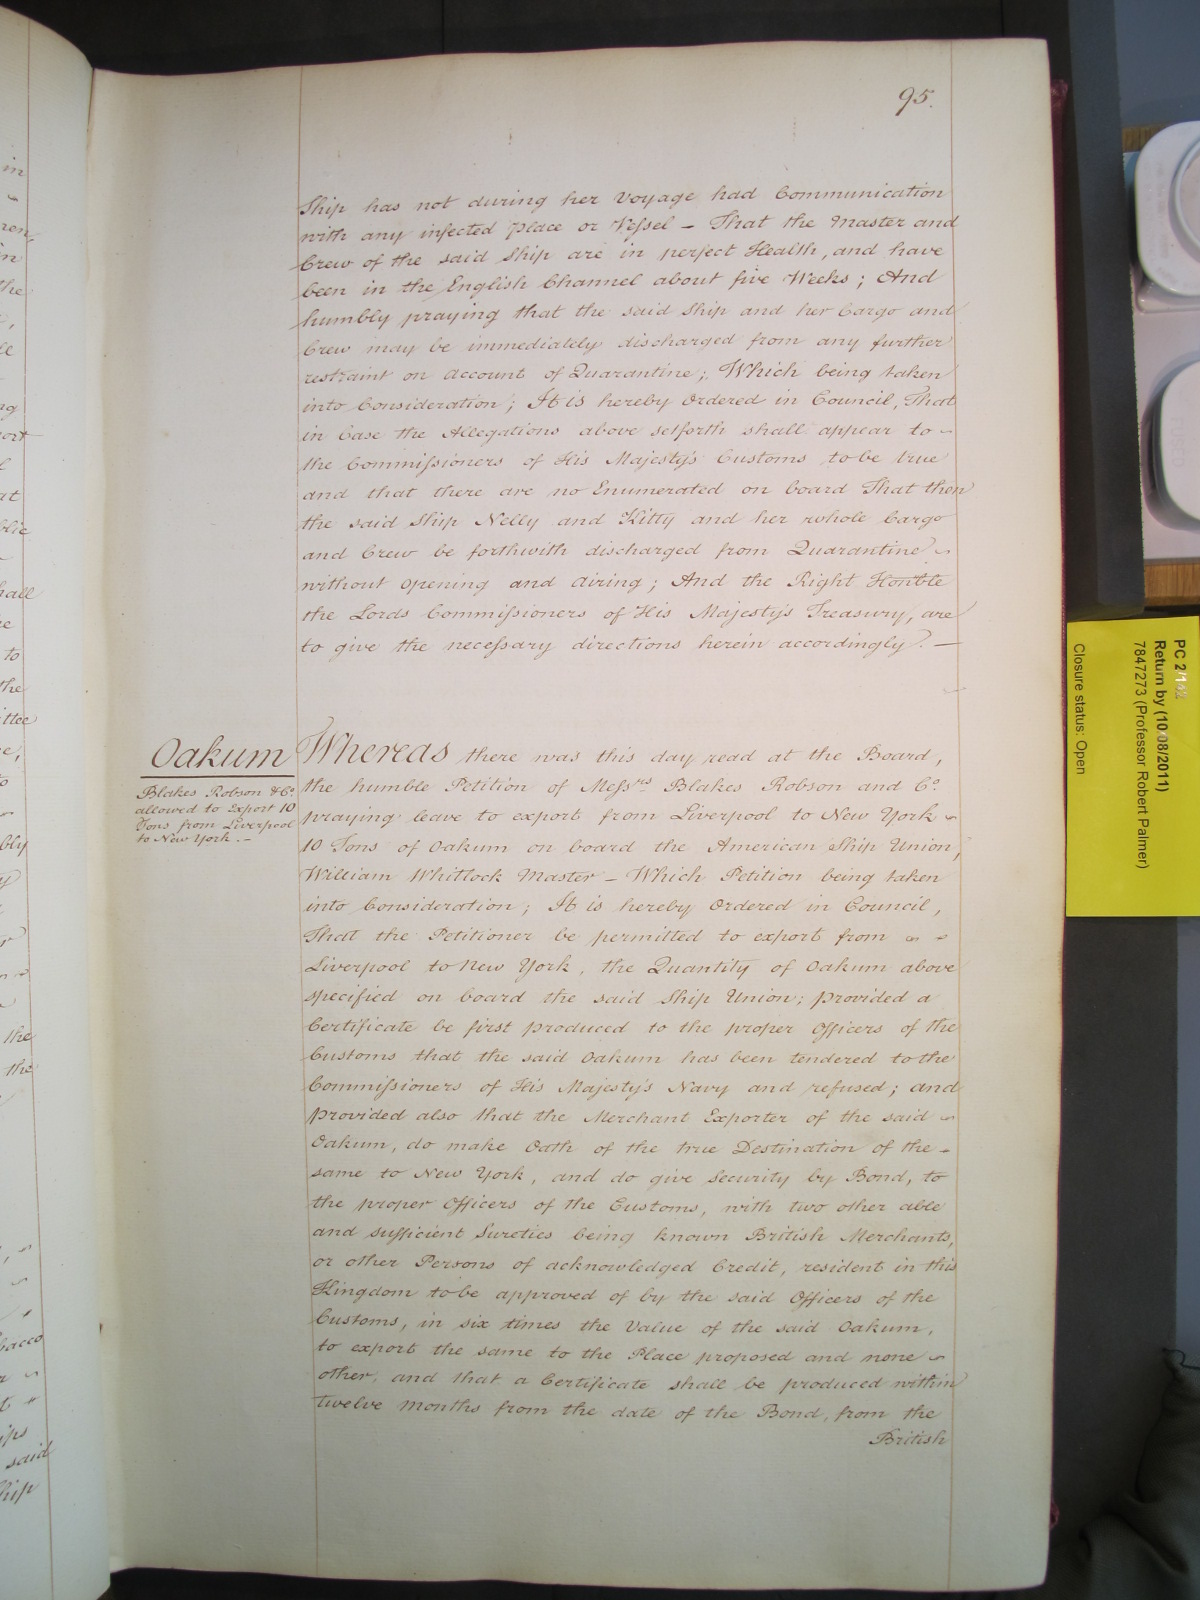 95.
Ship has not during her Voyage had Communication
with any infected Place or Vessel – That the Master and
Crew of the said Ship are in perfect Health, and have
been in the English Channel about five Weeks; And
humbly praying that the said Ship and her Cargo and
Crew may be immediately discharged from any further
restraint on account of Quarantine; Which being taken
into Consideration; It is hereby Ordered in Council, That
in Case the Allegations above setforth shall appear to ~
the Commissioners of His Majesty's Customs to be true
and that there are no Enumerated on board That then
the said Ship Nelly and Kitty and her whole Cargo
and Crew be forthwith discharged from Quarantine ~
without opening and airing; And the Right Honble
the Lords Commissioners of His Majesty's Treasury, are
to give the necessary directions herein accordingly. —
Oakum
Blakes Robson & Co.
allowed to Export 10
Tons from Liverpool
to New York. –
Whereas there was this day read at the Board,
the humble Petition of Messrs Blakes Robson and Co.
praying leave to export from Liverpool to New York ~
10 Tons of Oakum on board the American Ship Union,
William Whitlock Master – Which Petition being taken
into Consideration; It is hereby Ordered in Council,
That the Petitioner be permitted to export from ~ ~
Liverpool to New York, the Quantity of Oakum above
specified on board the said Ship Union; provided a
Certificate be first produced to the proper Officers of the
Customs that the said Oakum has been tendered to the
Commissioners of His Majesty's Navy and refused; and
provided also that the Merchant Exporter of the said ~
Oakum, do make Oath of the true Destination of the –
same to New York, and do give Security by Bond, to
the proper Officers of the Customs, with two other able
and sufficient Sureties being known British Merchants,
or other Persons of acknowledged Credit, resident in this
Kingdom to be approved of by the said Officers of the
Customs, in six times the Value of the said Oakum,
to export the same to the Place proposed and none ~
other, and that a Certificate shall be produced within
twelve Months from the date of the Bond, from the
British
PC 2/142
Return by (10/08/2011)
7847273 (Professor Robert Palmer)
Closure status: Open